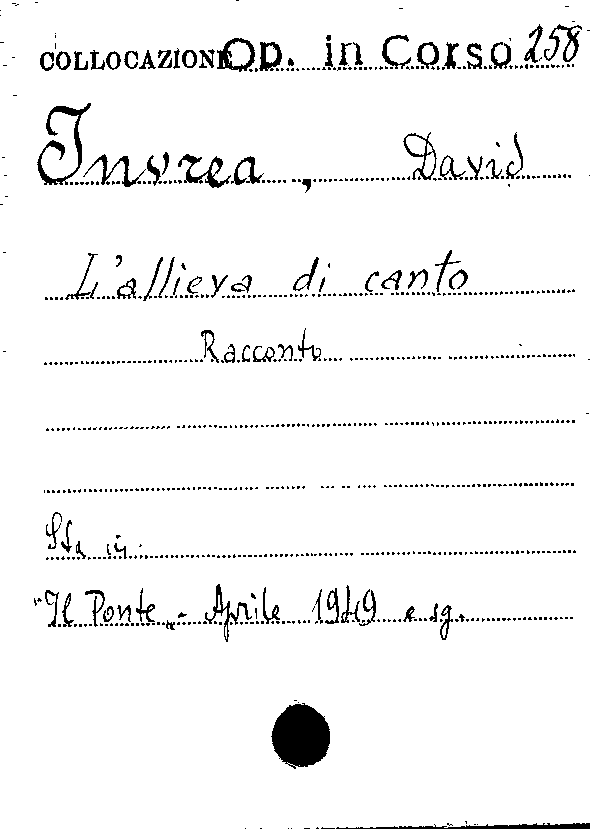 COLLOCAZIONE Op. in Corso 258
Invrea, David
L'allieva di canto
Racconto
Sta in:
"Il Ponte„ - Aprile 1949 e sg.